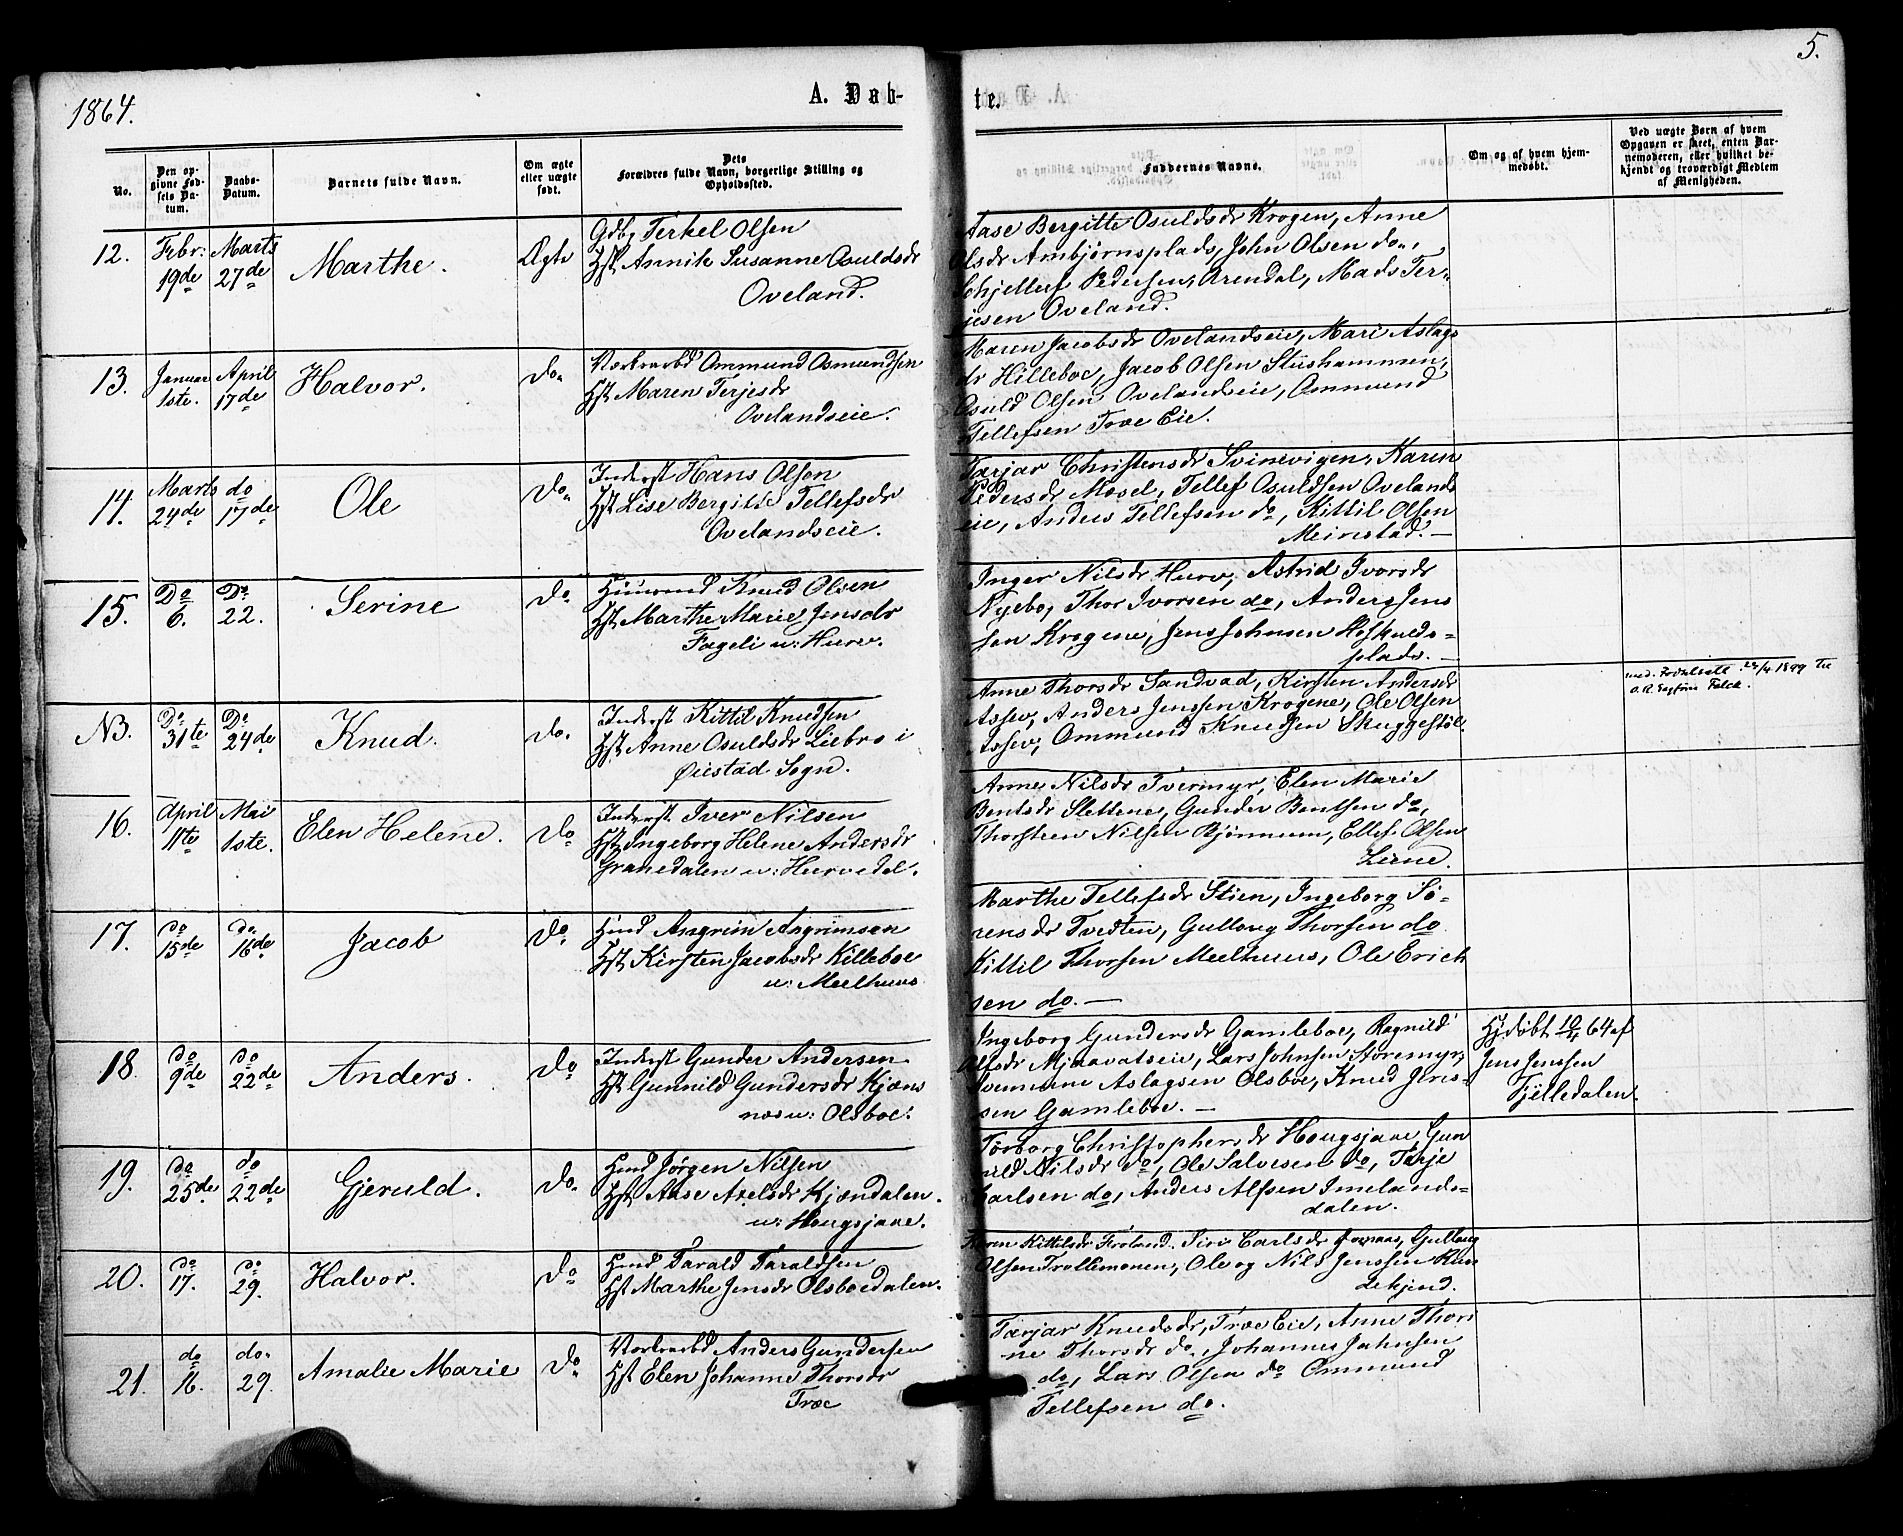 1864.
A. Døb-
te.
5.
No.
Den op-
givne Fød-
sels Da-
tum.
Daabs-
Datum.
Barnets fulde Navn.
Om ægte
eller uægte
født.
Dets
Forældres fulde Navn, borgerlige Stilling og
Opholdssted.
Faddernes Navne.
Om og af hvem hjem-
medøbt.
Ved uægte Børn af hvem
Opgaven er skeet, enten Bar-
nemoderen, eller hvilket be-
kjendt og troværdigt Medlem
af Menigheden.
12.
Febr:
19de
Marts
27de
Marthe.
Ægte
Gdbg Terkel Olsen
Hst Annik Susanne Osuldsdr
Oveland.
Aase Bergitte Osuldsdr Krogen, Anne
Olsdr Ambjørnsplads, John Olsen do.,
Schjellert Pedersen, Arendal, Mads Ter-
jesen Oveland.
13.
Januar
1ste.
April
17de
Halvor.
do.
Værkarbd Ommund Osmundsen
Hst Maren Terjesdr
Ovelandseie.
Maren Jacobsdr Ovelandseie, Mari Aslags
dr Hilleboe, Jacob Olsen Stushammeren,
Osuld Olsen Ovelandseie, Ommund
Tellefsen Træ Eie.
14.
Marts
24de
do
17de
Ole
do.
Inderst Hans Olsen
Hst Lise Bergitte Tellefsdr
Ovelandseie.
Tarjar Christensdr Svinevigen, Karen
Pedersdr Mosel, Tellef Osuldsen Ovelands
eie, Anders Tellefsen do, Kittil Olsen
Meinstad.—
15.
Do
6.
Do
22.
Serine
do
Huusmd Knud Olsen
Hst Marthe Marie Jensdr
Fageli u: Hurv.
Inger Nilsdr Hurv, Astrid Ivorsdr
Nyebo, Thor Ivorsen do, Anders Jens
sen Krogene, Jens Johnsen Høskulds-
plads.—
NB.
Do
31te
Do
24de
Knud.
do.
Inderst Kittil Knudsen
Hst Anne Osuldsdr Liebro i
Øiestad Sogn.
Anne Thorsdr Sandvad, Kirsten Andersdr
Assev, Anders Jenssen Krogene, Ole Olsen
Assev, Ommund Knudsen Skuggestøl.
1899
16.
April
11te
Mai
1ste.
Elen Helene.
do
Inderst Iver Nilsen
Hst Ingeborg Helene Andersdr
Granedalen u: Hurvedal.
Anne Nilsdr Tvermyr, Elen Marie
Bentsdr Slettene, Gunder Bentsen do,
Thorsteen Nilsen Bjønnum, Ellef Olsen
Liene.
17.
do
15de
do.
16de
Jacob
do
Husmd Asgrim Asgrimsen
Hst Kirsten Jacobsdr Killeboe
u: Meelhuus
Marthe Tellefsdr Stien, Ingeborg Sø-
rensdr Tvedten, Gullaug Thorsen do
Kittil Thorsen Meelhuus, Ole Erich
sen do.—
18.
do
9de
do
22de
Anders.
do
Inderst Gunder Andersen
Hst Gunnild Gundersdr Kjøns
næs u: Olsboe.
Ingeborg Gundersdr Gamleboe, Ragnild
Olsdr Mjaavatseie, Lars Johnsen Støremyr,
Aslagsen Olsboe, Knud Jens-
sen Gamleboe.—
Hjdøbt 10/4 64 af
Jens Jenssen
Tjilledalen.
19.
do
25de
do
22de
Gjeruld.
do.
Husmd Jørgen Nilsen
Hst Aase Axelsdr Kjændalen.
u: Hougsjaae.
Torborg Christophersdr Hougsjaae, Gun
nild Nilsdr do, Ole Salvesen do, Terje
Carlsen do, Anders Alfsen Imelands-
dalen.
20.
do
17.
do
29.
Halvor.
do
Husmd Tarald Taraldsen
Hst Marthe Jensdr Olsboedalen.
Karen Kittilsdr Froland. Siri Carlsdr Gullaug
Olsen Trollemonen, Ole og Nils Jenssen Run
dekjend.
21.
do
16.
do.
29.
Amalie Marie
do.
Værkarbd Anders Gundersen
Hst Elen Johanne Thorsdr
Træ
Tarjar Knudsdr, Træ Eie, Anne Thori
ne Thorsdr do., Johannes Johnsen
do, Lars Olsen do Ommund
Tellefsen do.